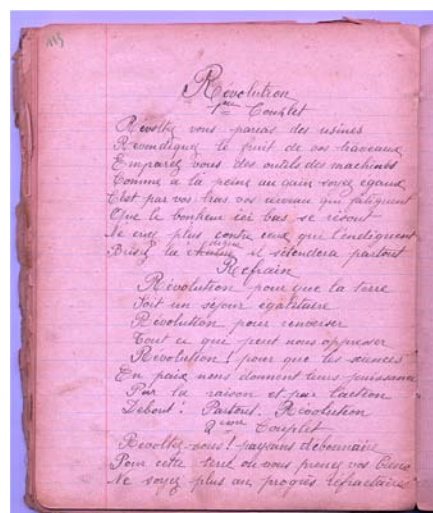 113
Révolution
1er Couplet
Révoltez vous parias des usines
Revendiquez le fruit de vos travaux
Emparez vous des outils des machines
Comme a la peine au gain soyez egaux
C'est par vos bras vos cerveaux qui fatiguent
Que le bonheur ici bas se résout
Ne criez plus contre ceux que l'endiguent
Brisez la digue il s'étendera partout
Refrain
Révolution pour que la terre
Soit un séjour égalitaire
Révolution pour renverser
Tout ce qui peut nous oppresser
Révolution! pour que les sciences
En paix nous donnent leurs puissance
Par la raison et par l'action
Debout! Partout! Révolution
2eme Couplet
Révoltez-vous! paysans débonnaire
Pour cette terre où vous prenez vos
Ne soyez plus au progrès réfractaire